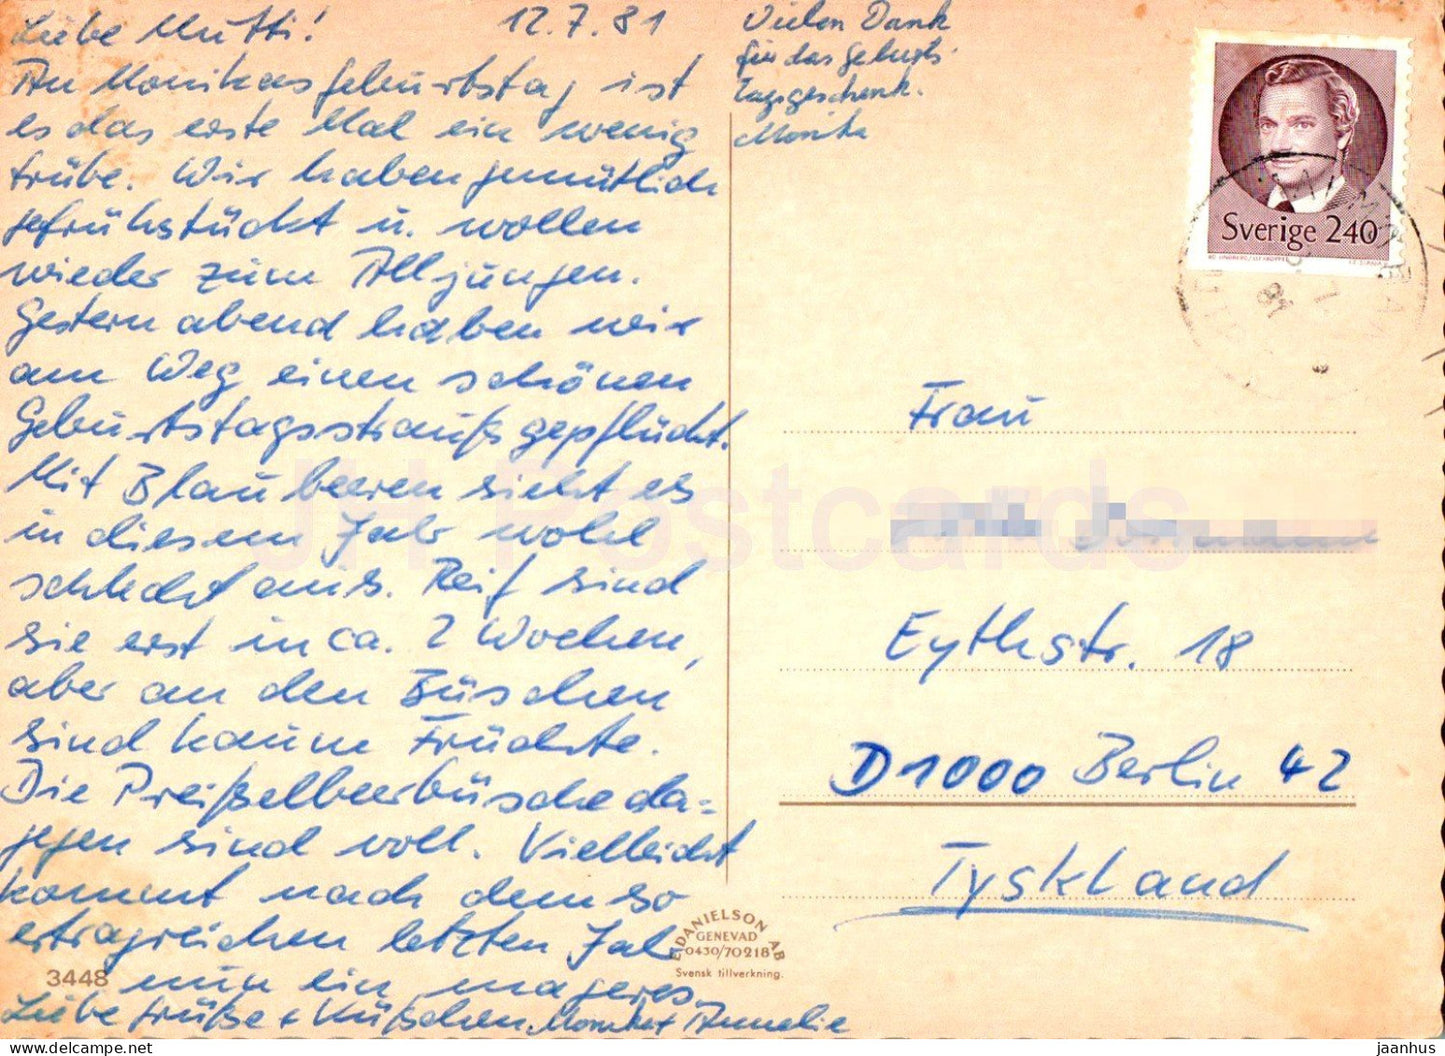 Liebe Mutti! 12.7.81
An Monikas Geburtstag ist
es das erste Mal ein wenig
trübe. Wir haben gemütlich
gefrühstückt u. wollen
wieder zum Alljungen.
Gestern abend haben wir
am Weg einen schönen
Geburtstagsstrauß gepflückt.
Mit Blaubeeren sieht es
in diesem Jahr wohl
schlecht aus. Reif sind
sie erst in ca. 2 Wochen,
aber an den Büschen
sind kaum Früchte.
Die Preißelbeerbüsche da=
gegen sind voll. Vielleicht
kommt nach dem so
ertragreichen letzten Jahr
nun ein mageres.
Liebe Grüße + Küßchen Annelie
Vielen Dank
für das Geburts-
tagsgeschenk.
Monika
Sverige 240
Frau
Eythstr. 18
D 1000 Berlin 42
Tyskland
3448
E. DANIELSON AB
GENEVAD
0430/70218
Svensk tillverkning.
JH Postcards
www.delcampe.net
jaanhus